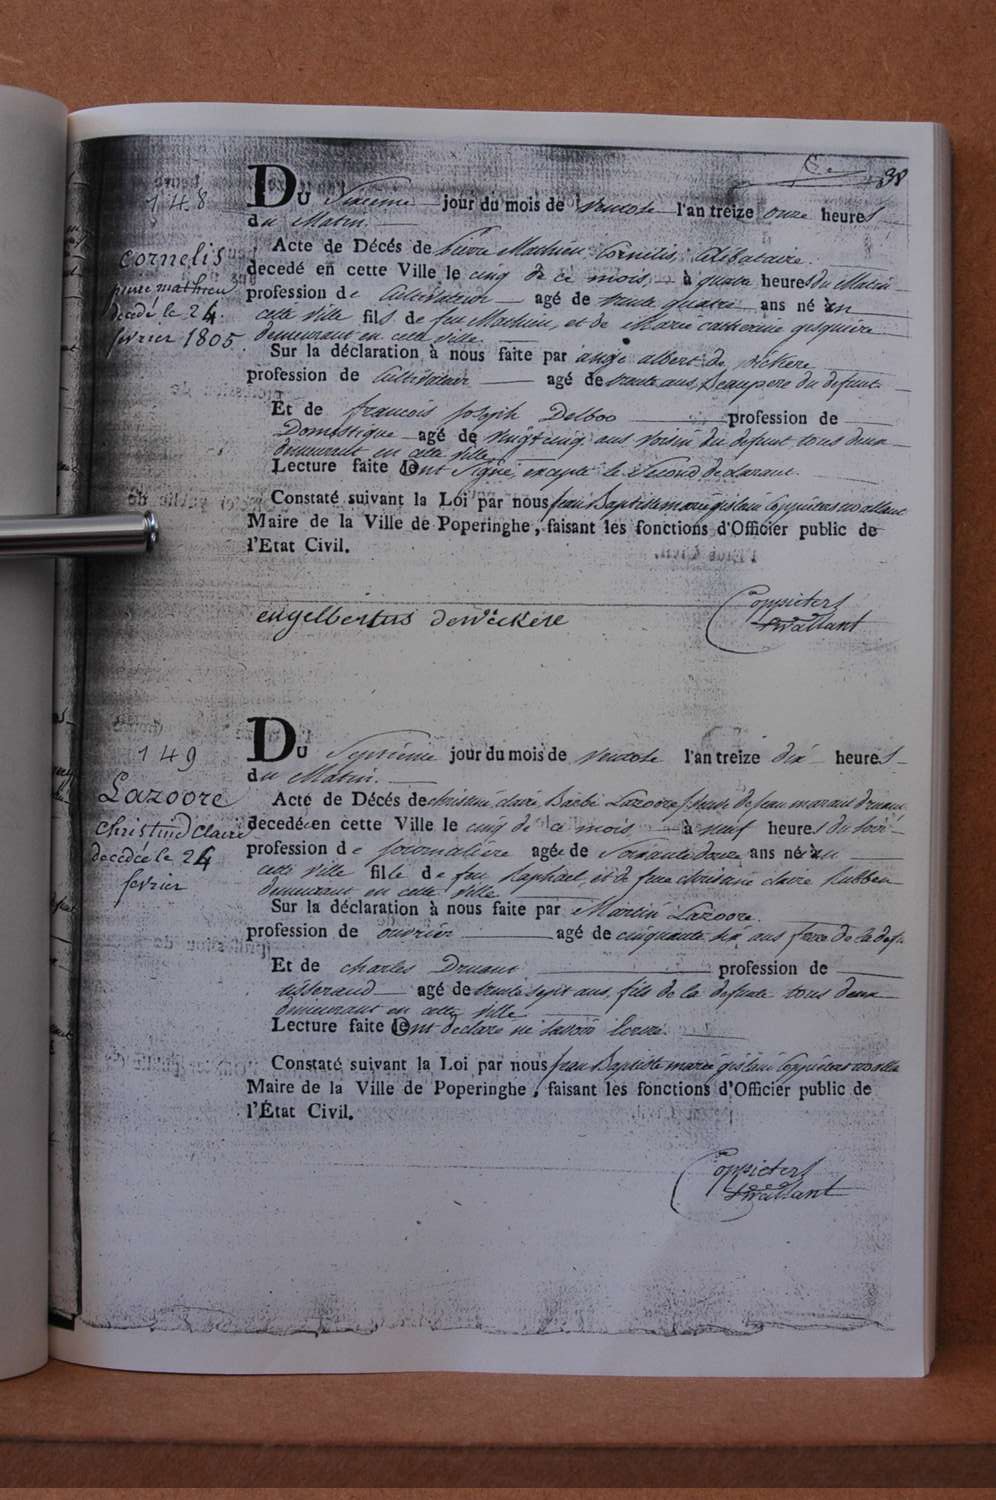 38
148
Cornelis
pierre mathieu
decédé le 24
fevrier 1805
Du Sixieme jour du mois de ventose l'an treize onze heures
du Matin.
Acte de Décés de Pierre Mathieu Cornelis, Célibataire.
decedé en cette Ville le cinq de ce mois, à quatre heures du Matin
profession de Cultivateur agé de trente quatre ans né en
cette ville fils de feu Mathieu, et de Marie catherine gesquiere
demeurant en cette ville.
Sur la déclaration à nous faite par ange albert de wickere
profession de Cultivateur agé de trente ans, Beaupere du defunt
Et de francois Joseph Delboo profession de
Domestique agé de vingt cinq ans voisin du defunt tous deux
demeurant en cette ville
Lecture faite ont Signé, excepté le second declarant.
Constaté suivant la Loi par nous jean Baptiste marie gislain Coppieters wallant
Maire de la Ville de Poperinghe, faisant les fonctions d'Officier public de
l'Etat Civil.
engelbertus dewickere
Coppieters
twallant
149
Lazoore
christine Claire
decédée le 24
fevrier
Du Septieme jour du mois de ventose l'an treize dix heures
du Matin.
Acte de Décés de christine claire Barbe Lazoore, veuve de jean
decedé en cette Ville le cinq de ce mois à neuf heures du soir
profession de journaliere agée de soixante douze ans né en
cette ville fille de feu Raphael, et de feue christine claire Rubben
demeurant en cette ville
Sur la déclaration à nous faite par Martin Lazoore.
profession de ouvrier agé de cinquante six ans frere de la def.
Et de charles Druant profession de
tisserand agé de trente sept ans, fils de la defunte tous deux
demeurant en cette ville
Lecture faite ont declaré ne savoir Ecrire.
Constaté suivant la Loi par nous jean Baptiste marie gislain Coppieters
Maire de la Ville de Poperinghe, faisant les fonctions d'Officier public de
l'État Civil.
Coppieters
twallant